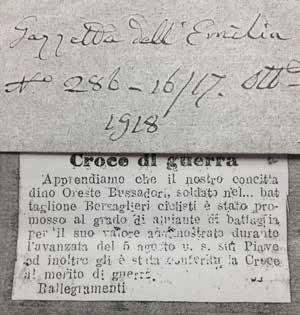 Gazzetta dell'Emilia
No 286 - 16/17. Ottᵉ
1918
Croce di guerra
Apprendiamo che il nostro concitta
dino Oreste Bussadori, soldato nel... bat
taglione Bersaglieri ciclisti è stato pro-
mosso al grado di aiutante di battaglia
per il suo valore addimostrato durante
l'avanzata del 5 agosto u. s. sul Piave
ed inoltre gli è stata conferita la Croce
al merito di guerra.
Rallegramenti